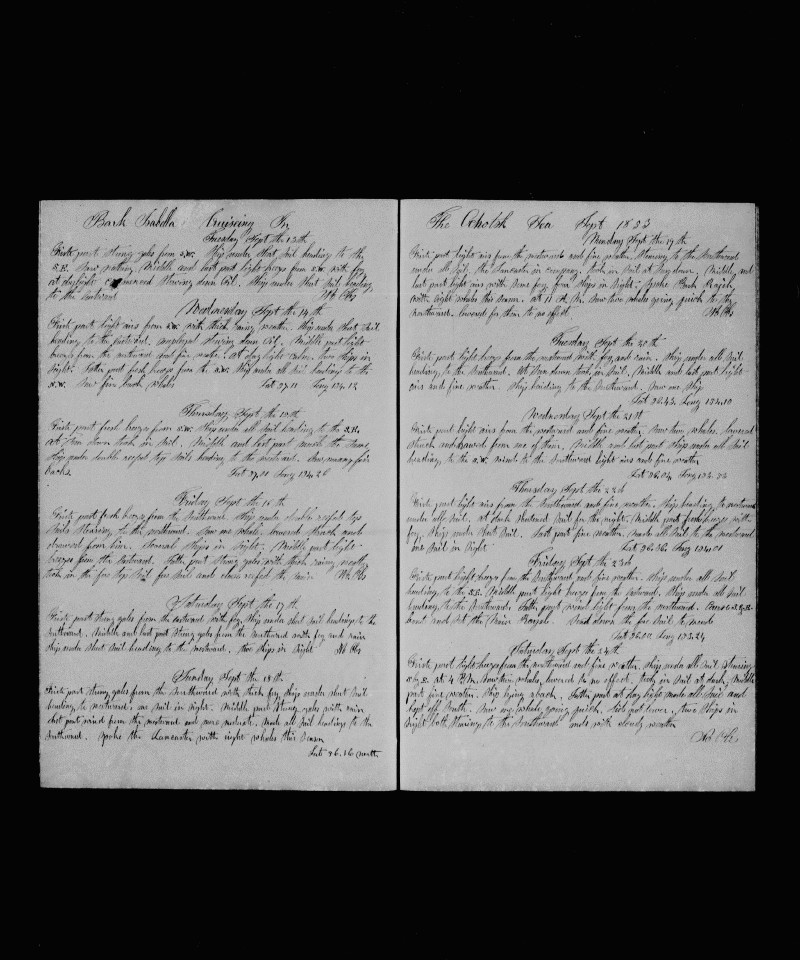 Bark Isabella Cruiseing In
Tuesday Sept the 13th
First part Strong gales from S.W. Ship under Short Sail heading to the
S.E. Saw nothing. Middle and last part light breeze from S.W. with fog
at daylight commenced Stowing down Oil. Ship under Short Sail heading
to the Westward No Obs
Wednesday Sept the 14th
First part light airs from S.W. with thick foggy weather. Ship under Short Sail
heading to the westward. employed Stowing down Oil. Middle part light
breeze from the westward and fine weather. At day light two Ships in
Sight. Latter part fresh breeze from the S.W. Ship under all Sail heading to the
N.W. Saw fin back whales Lat 37.11 Long 134.12
Thursday Sept the 15th
First part fresh breeze from S.W. Ship under all Sail heading to the
at Sun down took in Sail. Middle and last part much the Same,
Ship under double reefed top Sails heading to the westward. Saw many fin
backs. Lat 37.01 Long 134.26
Friday Sept the 16th
First part fresh breeze from the Southward. Ship under double reefed top
Sails Steering to the westward. Saw one whale. lowered Struck and
from him. Several Ships in Sight. Middle part light
breeze from the Eastward. Latter part Strong gales with thick rainy weather
took in the fore top Sail fore Sail and close reefed the main. No Obs
Saturday Sept the 17th
First part Strong gales from the Eastward with fog Ship under Short Sail heading to the
Southward. Middle and last part Strong gales from the Southward with fog and rain
Ship under Short Sail heading to the westward. two Ships in Sight No Obs
Sunday Sept the 18th
First part Strong gales from the Southward with thick fog Ship under Short Sail
heading to westward, one Sail in Sight. Middle part Strong gales with rain
last part winds from the westward and more moderate. made all Sail heading to the
Southward. Spoke the Lancaster with eight whales this Season
Lat 36.16 North
The Ochotsk Sea Sept 1853
Monday Sept the 19th
First part light airs from the westward and fine weather, Steering to the Southward
under all Sail. the Lancaster in company. took in Sail at Sun down. Middle and
last part light airs with Some fog four Ships in Sight. Spoke Bark
with eight whales this Season. at 11 A.M. Saw two whales going quick to the
northward. lowered for them to no effect. No Obs
Tuesday Sept the 20th
First part light breeze from the westward with fog and rain. Ship under all Sail
heading to the Southward. At Sun down took in Sail. Middle and last part light
airs and fine weather. Ship heading to the Southward. Saw one Ship
Lat 36.43 Long 134.10
Wednesday Sept the 21st
First part light airs from the westward and fine weather. Saw two whales. lowered
Struck and from one of them. Middle and last part Ship under all Sail
heading to the S.W. winds to the Southward light airs and fine weather
Lat 36.04
Thursday Sept the 22d
First part light airs from the Southward and fine weather. Ship heading to westward
under all Sail. at dark Shortened Sail for the night. Middle part fresh breeze with
fog. Ship under Short Sail. Last part fine weather. made all Sail to the westward
one Sail in Sight Lat 36.36 Long 134.01
Friday Sept the 23d
First part light breeze from the Southward and fine weather. Ship under all Sail
heading to the S.E. Middle part light breeze from the Eastward. Ship under all Sail
heading to the Southward. Latter part wind light from the northward.
and Set the Main Royal. Send down the fore Sail to mend
Lat 36.00 Long 133.24
Saturday Sept the 24th
First part light breeze from the northward and fine weather. Ship under all Sail Steering
at 4 P.M. Saw two whales, lowered to no effect. took in Sail at dark, Middle
part fine weather. Ship lying aback. Latter part at day light made all Sail and
kept off South. Saw one whale going quick. did not lower. two Ships in
Sight both Steering to the Southward ends with cloudy weather
No Obs